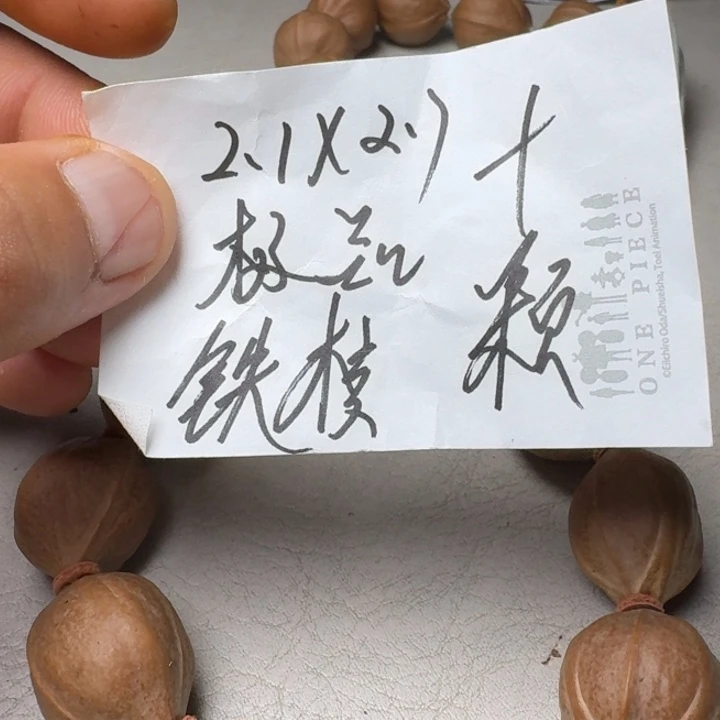 2.1X2.7
极品
铁模
十
颗
ONE PIECE
©Eiichiro Oda/Shueisha, Toei Animation